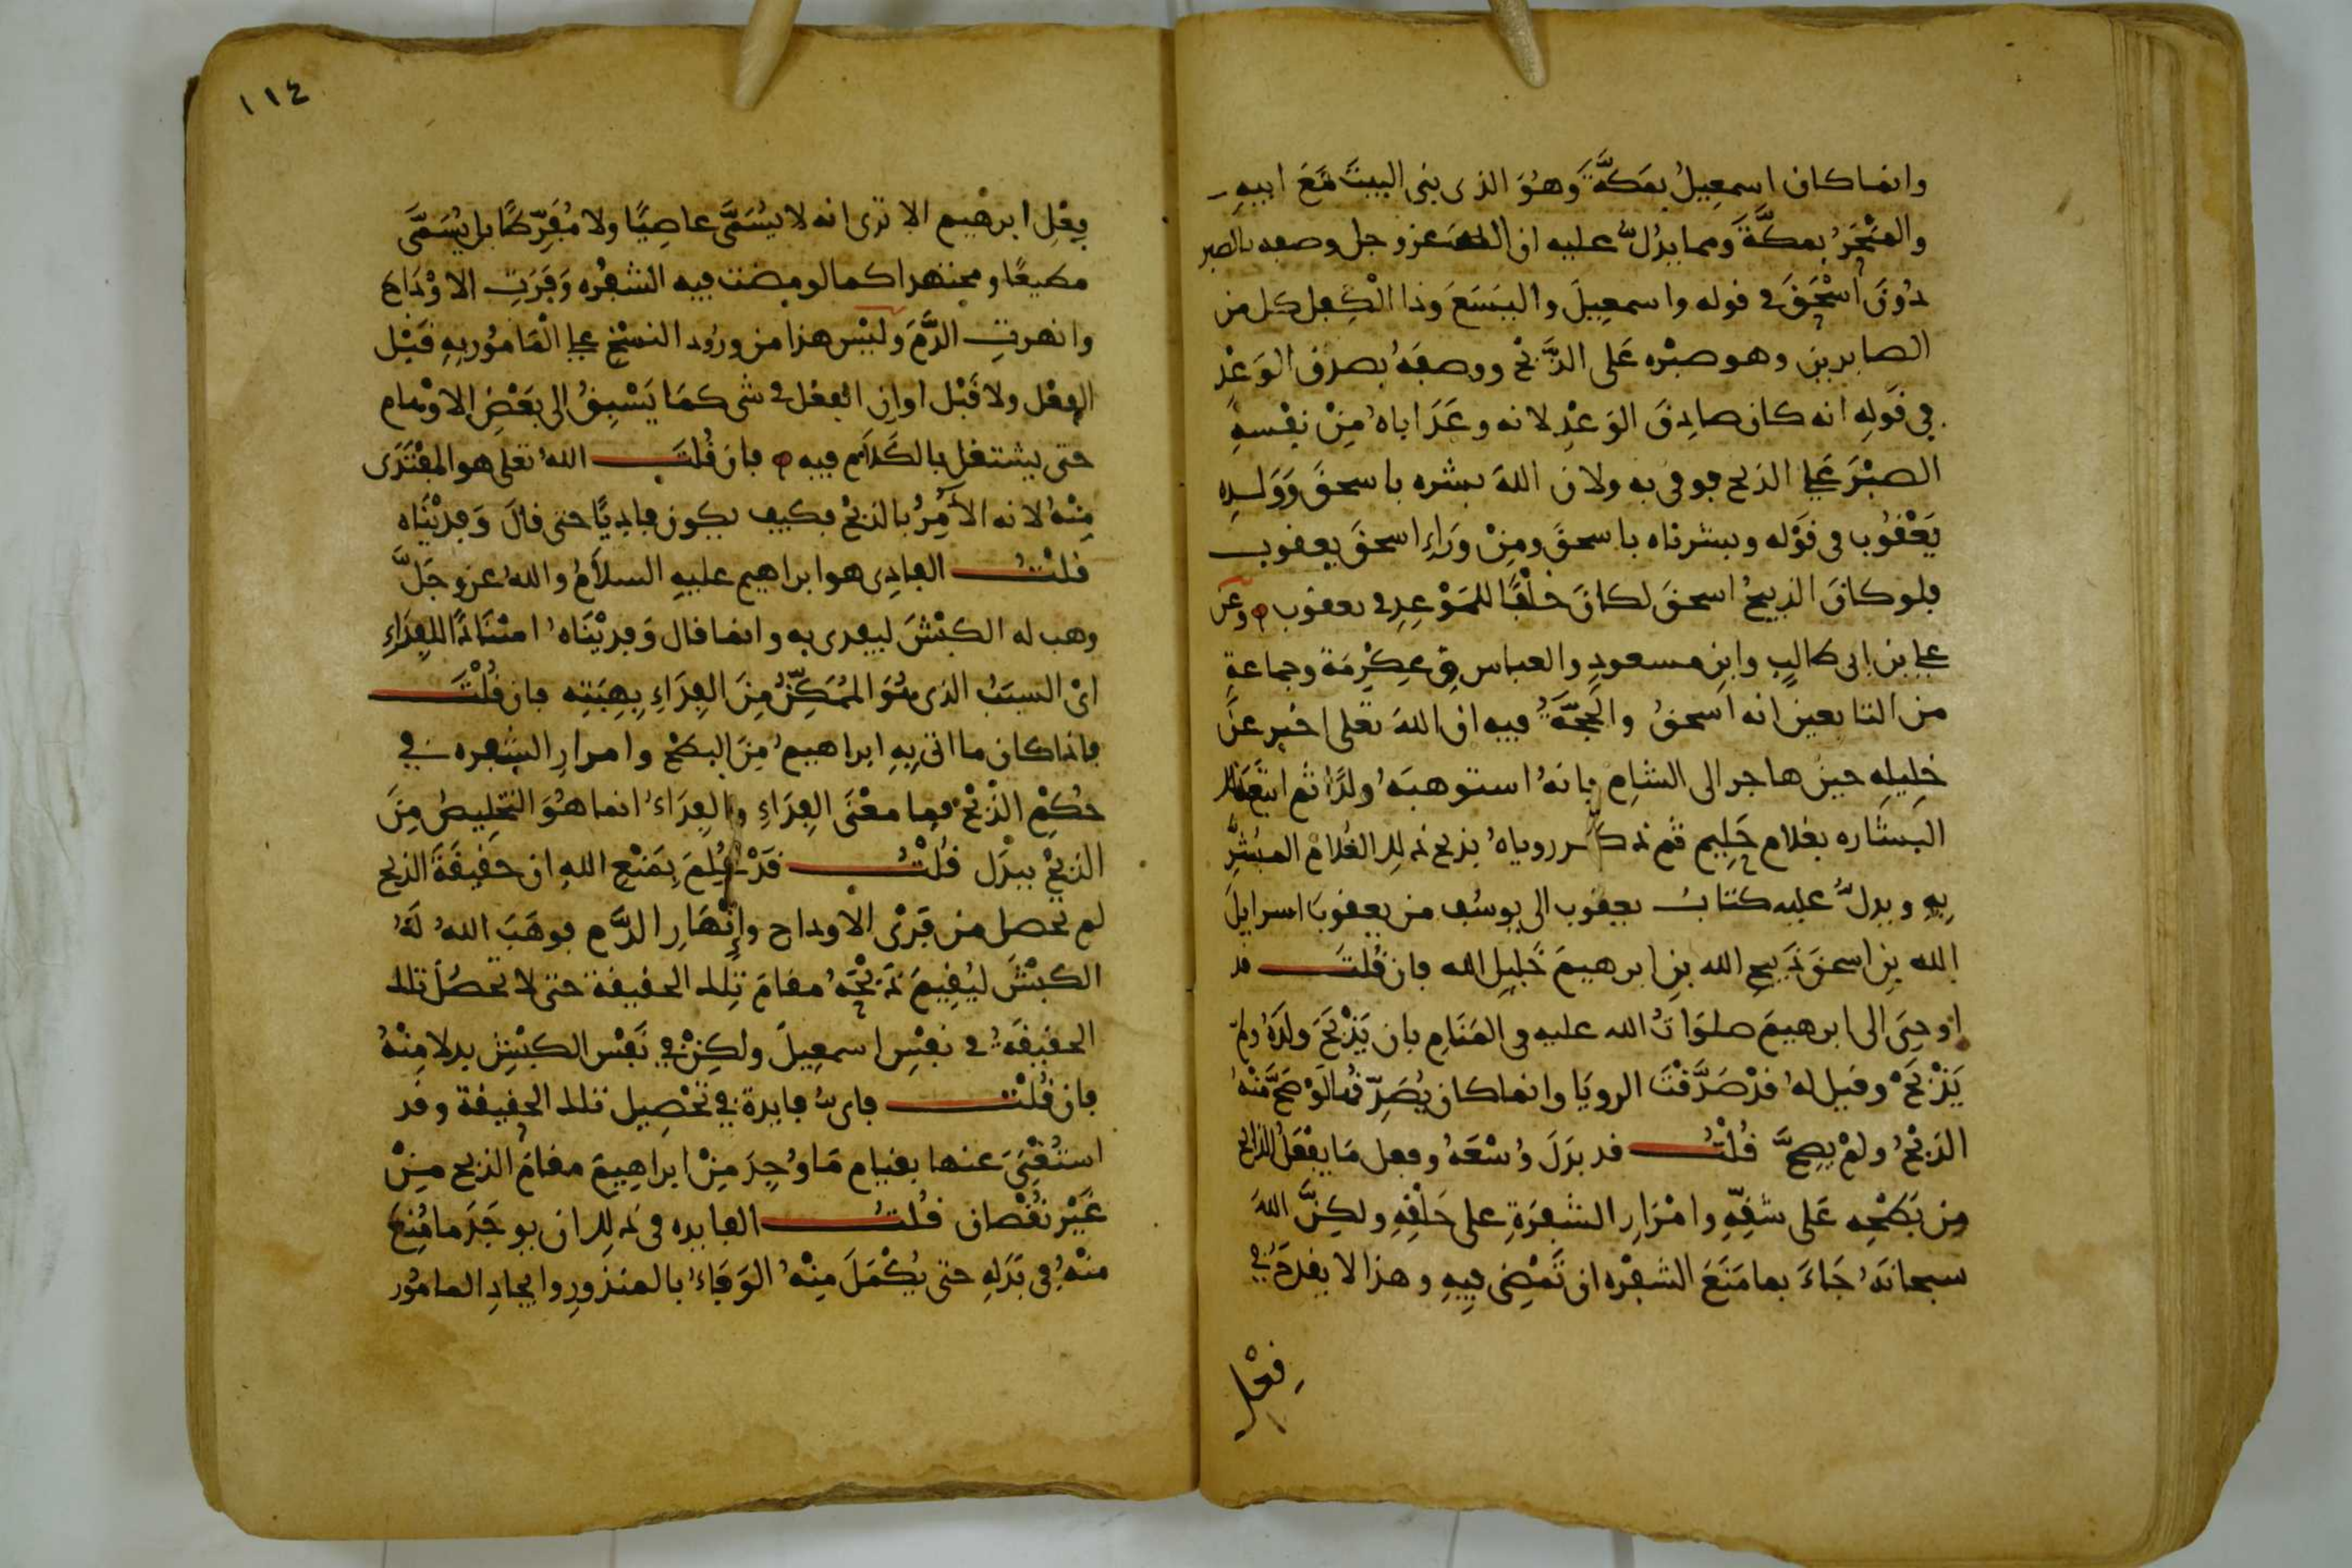 وانما كان اسمعيلُ بمكَّةَ وهُوَ الذى بنى البيتَ مَعَ ابيهِ
والمنْحَرُ بمكَّةَ ومما يدُلُّ عليه ان الله عز وجل وصفه بالصبر
دُونَ اسْحَقَ في قوله واسمعِيلَ واليَسَعَ وذا الْكِفل كل من
الصابرين وهو صبْره عَلى الذَّبْح ووصفَهُ بصدق الوَعْد
في قَولِهِ انه كان صادِقَ الوَعْدِ لانه وعَدَ اباهُ مِنْ نفْسهِ
الصبْرَ عَلى الذبح فوفى به ولان اللهَ بشره باسحقَ وَوَلدِه
يَعْقُوب فى قوْله وبشرناه باسحقَ ومِنْ وَرَاءِ اسحقَ يعقوب
فلو كانَ الذبيحُ اسحقَ لكانَ خلْفًا للمَوْعِدِ في يعقوب وعن
على بن ابى طالبٍ وابنِ مسعودٍ والعباس وعِكْرِمَة وجماعةٍ
من التابعين انه اسحقُ والحُجَّةُ فيه ان اللهَ تعلى اخبر عَنْ
خلِيلِهِ حين هاجر الى الشامِ بانهُ استوهبَهُ ولدًا ثم اتبَعَ ذلك
البشاره بغلام حَلِيم ثم ذكر روياهُ بذبح ذلك الغُلامِ المبُشَّرِ
بِهِ ويدلُّ عليه كتابُ يعقوب الى يوسُف من يعقوبَ اسرايلَ
الله بنِ اسحقَ ذبيحِ الله بنِ ابرهيمَ خَليلِ الله فان قُلتَ قد
اوحِىَ الى ابرهيمَ صلوَاتُ الله عليه فى المَنَامِ بان يَذْبَحَ ولدَهُ ولم
يَذْبَحْ وقيل لهُ قدْ صَدَّقْتَ الرويَا وانما كان يُصَدِّقُها لَوْ صَحَّ مِنْهُ
الذبْحُ ولمْ يصِحَّ قُلْتُ قد بذلَ وُسْعَهُ وفعل مَا يفْعَلُ الذابح
مِن بَطْحِه عَلى شقِّهِ وامْرَارِ الشفرَةِ على حَلْقِهِ ولكِنَّ اللهَ
سبحانهُ جَاءَ بما مَنَعَ الشفْره ان تَمْضِى فِيهِ وهذا لا يقدَحُ في
فِعْلِ
١١٤
فِعْلِ ابرهْيم الا ترى انه لا يُسَمَّى عاصِيًا ولا مُفَرِّطًا بل يُسَمَّى
مطيعًا ومجتهدا كما لو مضت فيه الشفْره وَفَرَتِ الاوْدَاج
وانهرتِ الدَّمَ ولَيْس هذا من ورُود النسْخ على الْمَامُور بِهِ قبْل
الفعْل ولا قَبْل اوان الفعْل في شى كمَا يَسْبِقُ الى بعْضِ الاوْهام
حتى يشتغل بالكلَام فيه فان قُلتَ اللهُ تعلى هو المفْتَدَى
مِنْهُ لانه الآمِرُ بالذبْح فكيف يكون فاديًا حتى قالَ وَفديْنَاه
قلْتُ الفادِى هو ابراهيم عليهِ السلَامُ واللهُ عز وجَلَّ
وهب له الكبْشَ ليفدى به وانما قال وَفدَيْنَاهُ امتْنَانًا للفِدَاءِ
اىْ السبَبُ الذى هُوَ المُمَكِّنُ مِنَ الفِدَاءِ بِهِبَتِه فان قُلْتَ
فاذا كان ما اتى بِهِ ابراهيمُ مِنَ البطْح وامرارِ الشفره في
حُكْمِ الذَّبْح فما معْنَى الفِدَاءِ والفِدَاءُ انما هُوَ التخليصُ مِنَ
الذبْح ببدَل قُلْتُ قدْ عُلِمَ بمَنْعِ اللهِ ان حَقيقَةَ الذبح
لم تحصل من فَرْى الاوداج وإنْهَارِ الدَّم فوهَبَ اللهُ لَهُ
الكبْشَ ليُقِيمَ ذبْحَهُ مقامَ تِلك الحقيقة حتى لا تحصُلَ تلك
الحقيقَةُ في نفْسِ اسمعِيلَ ولكِنْ في نَفْس الكبْش بدلا مِنْهُ
فان قُلْتَ فاىُّ فايدة في تحْصِيل تلك الحقيقة وقد
استُغْنِىَ عنها بقيام مَا وُجِدَ مِنْ ابراهِيمَ مقامَ الذبح مِنْ
غَيْر نقُصان قُلتُ الفايده فى ذلك ان يوجَدَ ما مُنِعَ
منْهُ فى بَدَلِهِ حتى يُكْمَلَ مِنْهُ الوَفَاءُ بالمنذورِ وايجادِ المامُور